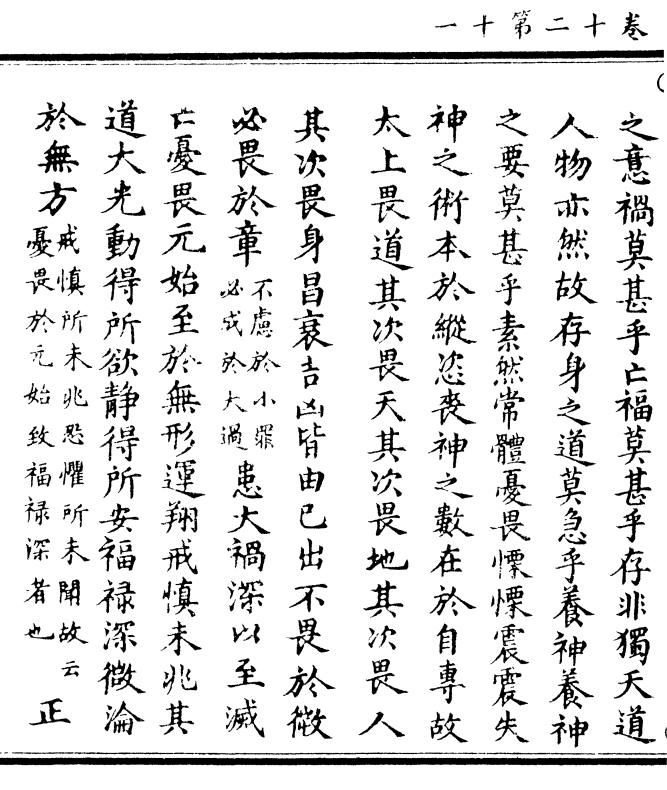 卷十二第十一
之意禍莫甚乎亡福莫甚乎存非獨天道
人物亦然故存身之道莫急乎養神養神
之要莫甚乎素然常體憂畏慄慄震震失
神之術本於縱恣喪神之數在於自專故
太上畏道其次畏天其次畏地其次畏人
其次畏身昌衰吉凶皆由已出不畏於微
必畏於章不慮於小罪必成於大過患大禍深以至滅
亡憂畏元始至於無形運翔戒慎未兆其
道大光動得所欲静得所安福禄深微淪
於無方戒慎所未兆恐懼所未聞故云憂畏於元始致福禄深者也正